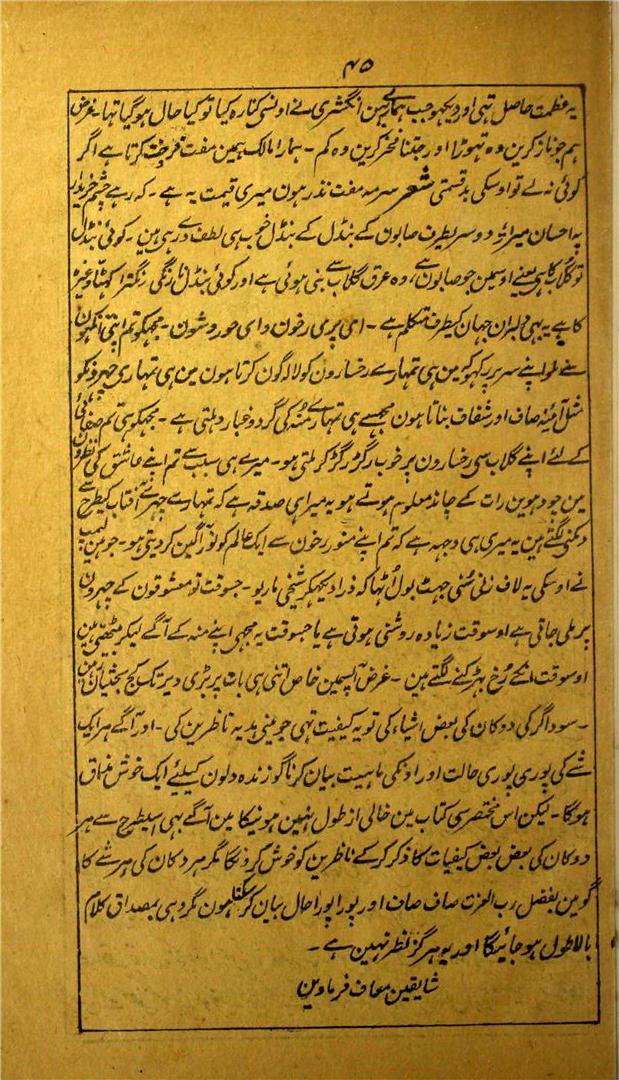 ۴۵
یہ عظمت حاصل تہی اور دیکہو جب ہمارے جہن انگشتری نے اونسی کنارہ کیا تو کیا حال ہوگیا تہا۔ غرض
ہم جو ناز کرین وہ تہوڑا اور جتنا فخر کرین وہ کم ۔ ہمارا مالک ہمین مفت فروخت کرتا ہے اگر
کوئی نہ لے تو اوسکی بدقسمتی شعر سرمہ مفت نذر ہون میری قیمت یہ ہے ۔ کہ رہے چشم خریدار
پہ احسان میرا ۔ دوسریطرف صابون کے بنڈل کے بنڈل خوب ہی لطف دے رہی ہین ۔ کوئی بنڈل
تو گلاب کا ہی یعنے اوسمین جو صابون ہے، وہ عرق گلاب سے بنی ہوئی ہے اور کوئی بنڈل نارنگی رنگترا وغیرہ
کا ہے یہ بہی دلبران جہان کیطرف متکلم ہے ۔ ای پری رخون وای حور وشون ۔ مجہکو تم اپنی آنکہون
سے لو اپنے سر پر رکہو کہ مین ہی تمہارے رخسارون کو لالہ گون کرتا ہون مین ہی تمہاری چہرونکو
مثل آئینہ صاف اور شفاف بناتا ہون مجہسے ہی تمہارے مُنہ کی گرد و غبار دہلتی ہے ۔ مجہکو ہی تم صفائی
کے لئے اپنے گلاب سی رخسارون پر خوب رگڑ رگڑ کر ملتی ہو ۔ میرے ہی سبب سے تم اپنے عاشق کی نظرون
مین چودہوین رات کے چاند معلوم ہوتے ہو یہ میرا ہی صدقہ ہے کہ تمہارے چہرے آفتاب کیطرح سے
دمکنی لگتے ہین یہ میری ہی وجہہ ہے کہ تم اپنے منور رخون سے ایک عالم کو نور آگین کردیتی ہو ۔ جوہین لیمپ
نے اوسکی یہ لاف زنی سُنی جہٹ بول اُٹہا کہ ذرا دیکہکر شیخی مارو ۔ جسوقت تو معشوقون کے چہرون
پر ملی جاتی ہے اوسوقت زیادہ روشنی ہوتی ہے یا جسوقت یہ مجہی اپنے منہ کے آگے لیکر بیٹھتی ہین
اوسوقت انکے رُخ بہڑکنے لگتے ہین ۔ غرض آپسمین خاص اتنی ہی بات پر بڑی دیر تک کج بحثیان رہین
۔ سوداگر کی دوکان کی بعض اشیاء کی تو یہ کیفیت تہی جو مینی ہدیہ ناظرین کی ۔ اور آگے ہر ایک
شے کی پوری پوری حالت اور اونکی ماہیت بیان کرنا گو زندہ دلون کیلئے ایک خوش مذاق
ہوگا ۔ لیکن اس مختصر سی کتاب مین خالی از طول نہین ہونیکا مین آگے بہی اسیطرح سے ہر
دوکان کی بعض بعض کیفیات کا ذکر کرکے ناظرین کو خوش کردونگا مگر ہر دکان کی ہر شے کا
گو مین بفضل رب العزت صاف صاف اور پورا پورا حال بیان کرسکتا ہون مگر وہی بمصداق کلام
بالا طول ہو جائیگا اور یہ ہرگز نظر نہین ہے ۔
شایقین معاف فرماوین